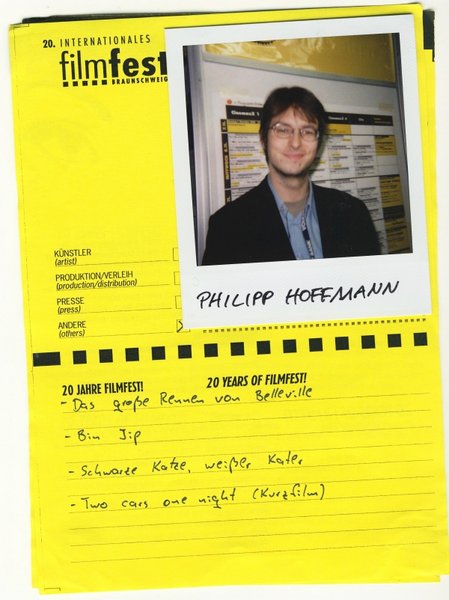 20. INTERNATIONALES
filmfest
BRAUNSCHWEIG
Cinemaxx 1
KÜNSTLER
(artist)
PRODUKTION/VERLEIH
(production/distribution)
PRESSE
(press)
ANDERE
(others)
PHILIPP HOFFMANN
20 JAHRE FILMFEST! 20 YEARS OF FILMFEST!
- Das große Rennen von Belleville
- Bin Jip
- Schwarze Katze, weißer Kater
- Two cars one night (Kurzfilm)